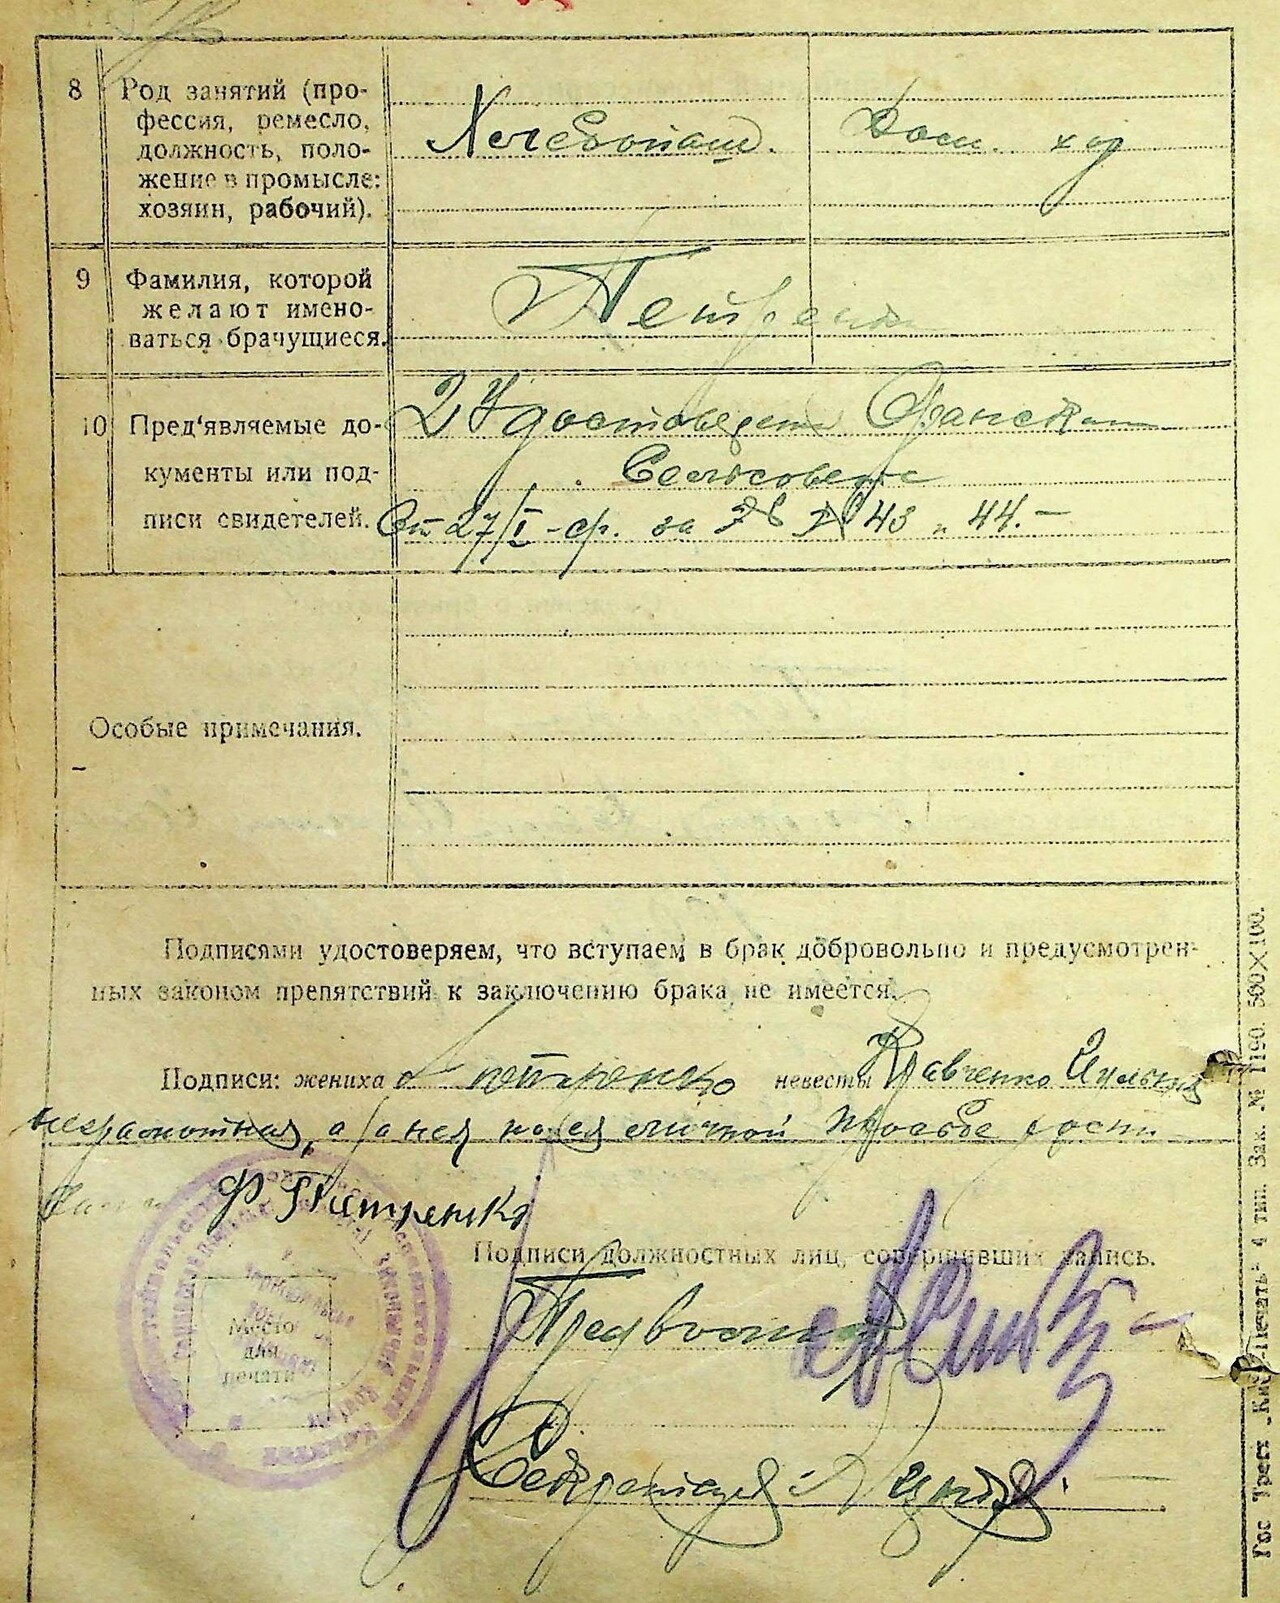 8 Род занятий (про-
фессия, ремесло,
должность, поло-
жение в промысле:
хозяин, рабочий).
Хлебопаш. Дом. хоз
9 Фамилия, которой
желают имено-
ваться брачущиеся.
Петренко
10 Пред‘являемые до-
кументы или под-
писи свидетелей.
2 Удостоверен
Сельсовета
От 27/I - с/г. за 43 и 44. —
Особые примечания.
Подписями удостоверяем, что вступаем в брак добровольно и предусмотрен-
ных законом препятствий к заключению брака не имеется.
Подписи: жениха Петренко невесты Кравченко
неграмотная, а за нея по ея личной просьбе
Ф Петренко
Подписи должностных лиц, совершивших запись.
Место
для
печати
Секретарь
Гос Трест „Киев-Печать“ 4 тип. Зак. № 1190. 500×100.